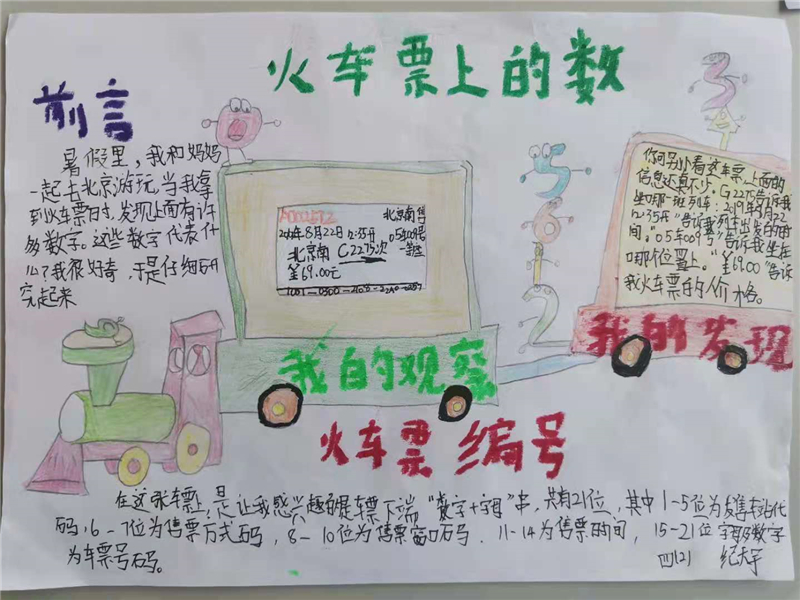 火车票上的数
前言
暑假里，我和妈妈
一起去北京游玩，当我拿
到火车票时，发现上面有许
多数字。这些数字代表什
么？我很好奇，于是仔细研
究起来
北京南
8月22日12:35开
05车009号
北京南 C2275次
一等座
￥69.00元
我的观察
你可别小看这车票，上面的
信息还真不少。C2275告诉我
坐哪一班列车；2019年8月22
12:35开"告诉我列车出发的时
间。"05车009号"告诉我坐在
哪个位置上。"￥69.00"告诉
我火车票的价格。
我的发现
5
6
1
2
3
火车票编号
在这张车票上，是让我感兴趣的是车票下端"数字+字母"串，共有21位，其中1-5位为发售车站代
码，6-7位为售票方式码，8-10位为售票窗口码，11-14为售票时间，15-21位字母及数字
为车票号码。
四(2) 纪天宇